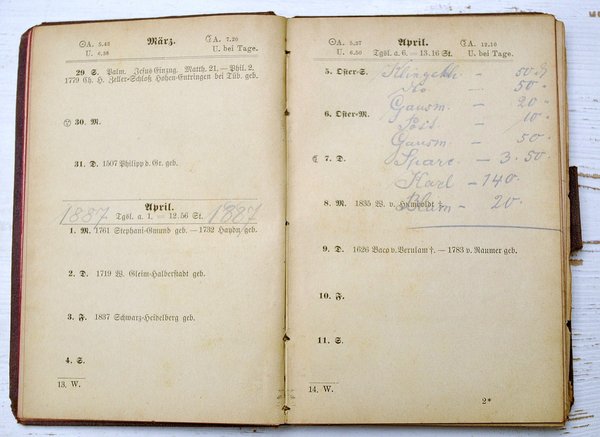 ☉A. 5.43 März. ☾A. 7.20
U. 6.38 U. bei Tage.
29 S. Palm. Jesus Einzug. Matth. 21. — Phil. 2.
1779 Ch. H. Zeller-Schloß Hohen-Entringen bei Tüb. geb.
30. M.
31. D. 1507 Philipp d. Gr. geb.
April.
1887 Tgsl. a. 1. — 12.56 St. 1887
1. M. 1761 Stephani-Gmünd geb. — 1732 Haydn geb.
2. D. 1719 W. Gleim-Halberstadt geb.
3. F. 1837 Schwarz-Heidelberg geb.
4. S.
13. W.
☉A. 5.27 April. ☾A. 12.10
U. 6.50 Tgsl. a. 6. — 13.16 St. U. bei Tage.
5. Oster-S. — 50
— 50
Gausm. — 20
6. Oster-M. — 10
Gausm. 50
☾ 7. D. — 3.50
Karl — 140
8. M. 1835 W. v. Humboldt †. — 20
9. D. 1626 Baco v. Verulam †. — 1783 v. Raumer geb.
10. F.
11. S.
14. W.
2*